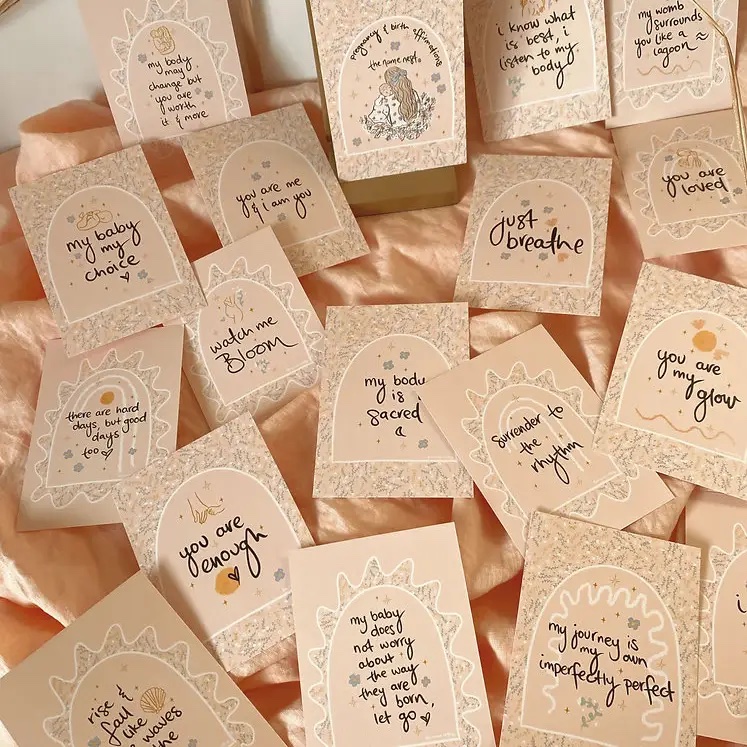 my body
may
change but
you are
worth
it & more
pregnancy & birth affirmations
the name nest
i know what
is best, i
listen to my
body
my womb
surrounds
you like a
lagoon
my baby
my
choice
you are me
& i am you
just
breathe
you are
loved
watch me
Bloom
there are hard
days, but good
days
too
my body
is
sacred
Surrender to
the
rhythm
you are
my
glow
you are
enough
my baby
does
not worry
about
the way
they are
born,
let go
my journey is
my own
imperfectly perfect
rise &
fall
like
the waves